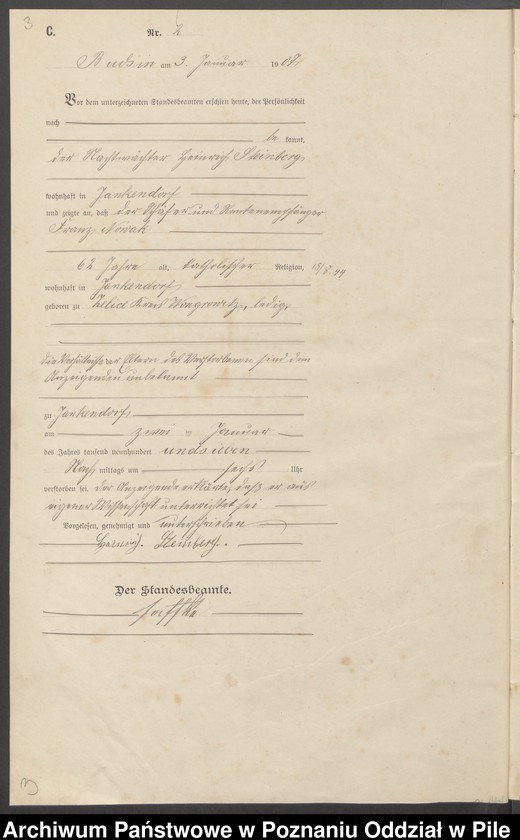 3
C. Nr. 2
Budsin am 3. Januar 1907
Vor dem unterzeichneten Standesbeamten erschien heute, der Persönlichkeit
nach
be kannt,
der Nachtwächter Heinrich Steinberg,
wohnhaft in Jankendorf
und zeigte an, daß der Schäfer und Rentenempfänger
Franz Nowak
62 Jahre alt, katholischer Religion,
wohnhaft in Jankendorf
geboren zu Zelice Kreis Wongrowitz, ledig,
die Verhältnisse der Eltern des Verstorbenen sind dem
Anzeigenden unbekannt
zu Jankendorf
am zwei ten Januar
des Jahres tausend neunhundert und sieben
Nach mittags um sechs Uhr
verstorben sei. der Anzeigende erklärte, daß er aus
eigener Wissenschaft unterrichtet sei
Vorgelesen, genehmigt und unterschrieben
Heinrich Steinberg.
Der Standesbeamte.
3
Archiwum Państwowe w Poznaniu Oddział w Pile